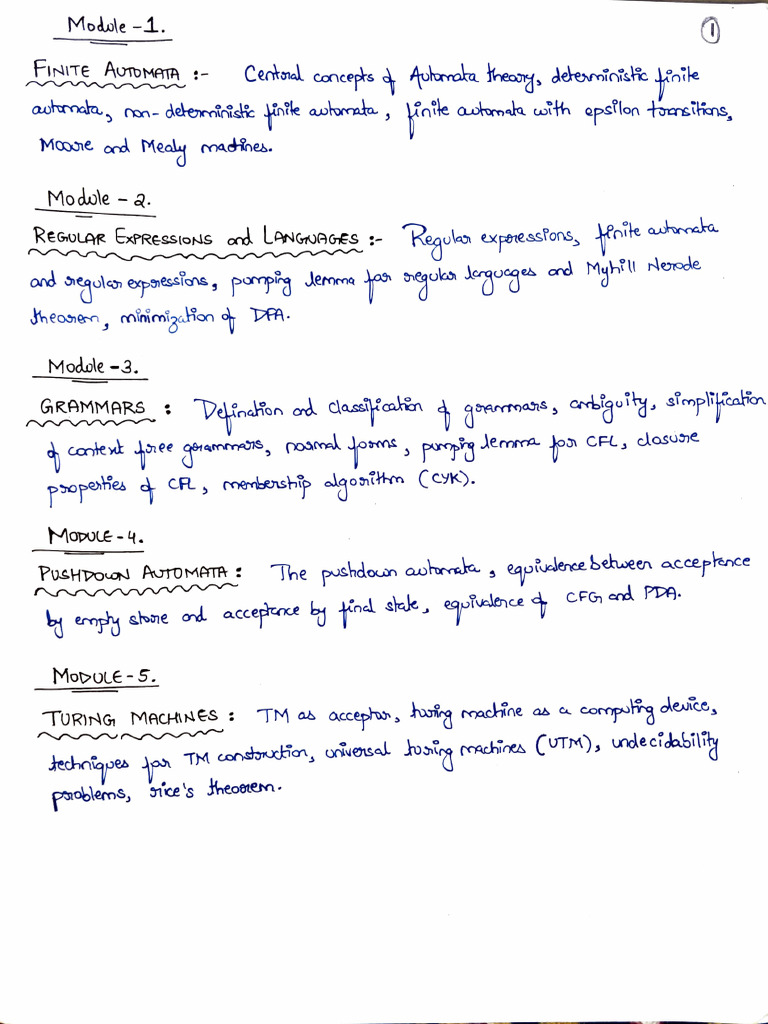 Module - 1.
1
FINITE AUTOMATA :- Central concepts of Automata theory, deterministic finite
automata, non-deterministic finite automata, finite automata with epsilon transitions,
Moore and Mealy machines.
Module - 2.
REGULAR EXPRESSIONS and LANGUAGES :- Regular expressions, finite automata
and regular expressions, pumping lemma for regular languages and Myhill Nerode
theorem, minimization of DFA.
Module - 3.
GRAMMARS : Defination and classification of grammars, ambiguity, simplification
of context free grammars, normal forms, pumping lemma for CFL, closure
properties of CFL, membership algorithm (CYK).
MODULE - 4.
PUSHDOWN AUTOMATA : The pushdown automata, equivalence between acceptance
by empty store and acceptance by final state, equivalence of CFG and PDA.
MODULE - 5.
TURING MACHINES : TM as acceptor, turing machine as a computing device,
techniques for TM construction, universal turing machines (UTM), undecidability
problems, rice's theorem.